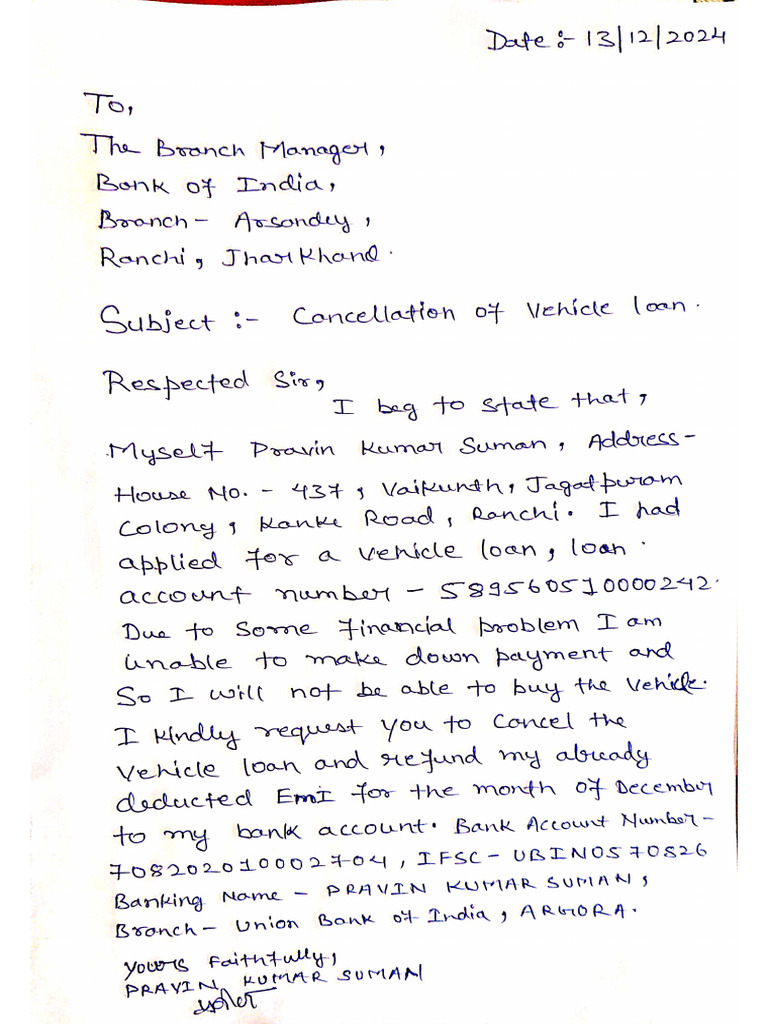 Date :- 13/12/2024
To,
The Branch Manager,
Bank of India,
Branch - Arsondey,
Ranchi, Jharkhand.
Subject :- Cancellation of Vehicle loan.
Respected Sir,
I beg to state that,
Myself Pravin Kumar Suman, Address-
House No. - 437, Vaikunth, Jagatpuram
Colony, Kanke Road, Ranchi. I had
applied for a vehicle loan, loan
account number - 589560510000242.
Due to some financial problem I am
unable to make down payment and
so I will not be able to buy the vehicle.
I kindly request you to cancel the
vehicle loan and refund my already
deducted EMI for the month of December
to my bank account. Bank Account Number-
708202010002704, IFSC - UBIN0570826
Banking Name - PRAVIN KUMAR SUMAN,
Branch - Union Bank of India, ARGORA.
Yours Faithfully,
PRAVIN KUMAR SUMAN